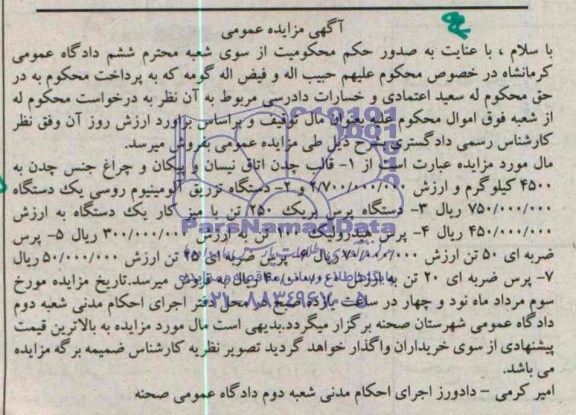 آگهی مزایده عمومی
با سلام ، با عنایت به صدور حکم محکومیت از سوی شعبه محترم ششم دادگاه عمومی
کرمانشاه در خصوص محکوم علیهم حبیب اله و فیض اله گومه که به پرداخت محکوم به در
حق محکوم له سعید اعتمادی و خسارات دادرسی مربوط به آن نظر به درخواست محکوم له
از شعبه فوق اموال محکوم علیه بعنوان مال توقیف و براساس برآورد ارزش روز آن وفق نظر
کارشناس رسمی دادگستری بشرح ذیل طی مزایده عمومی بفروش میرسد.
مال مورد مزایده عبارت است از ۱- قالب چدن اتاق نیسان و پیکان و چراغ جنس چدن به
۴۵۰۰ کیلوگرم و ارزش ۲/۷۰۰/۰۰۰/۰۰۰ و ۲- دستگاه تزریق آلومینیوم روسی یک دستگاه
۷۵۰/۰۰۰/۰۰۰ ریال ۳- دستگاه پرس بریک ۲۵۰ تن با میز کار یک دستگاه به ارزش
۴۵۰/۰۰۰/۰۰۰ ریال ۴- پرس هیدرولیک تن به ارزش ۳۰۰/۰۰۰/۰۰۰ ریال ۵- پرس
ضربه ای ۵۰ تن ارزش ریال ۶- پرس ضربه ای ۲۵ تن ارزش ۵۰/۰۰۰/۰۰۰ ریال
۷- پرس ضربه ای ۲۰ تن به ارزش ریال به فروش میرسد.تاریخ مزایده مورخ
سوم مرداد ماه نود و چهار در ساعت یازده صبح در محل دفتر اجرای احکام مدنی شعبه دوم
دادگاه عمومی شهرستان صحنه برگزار میگردد.بدیهی است مال مورد مزایده به بالاترین قیمت
پیشنهادی از سوی خریداران واگذار خواهد گردید تصویر نظریه کارشناس ضمیمه برگه مزایده
می باشد.
امیر کرمی - دادورز اجرای احکام مدنی شعبه دوم دادگاه عمومی صحنه
ParsNamadData
۰۲۱-۸۸۳۴۹۶۷۰-۵